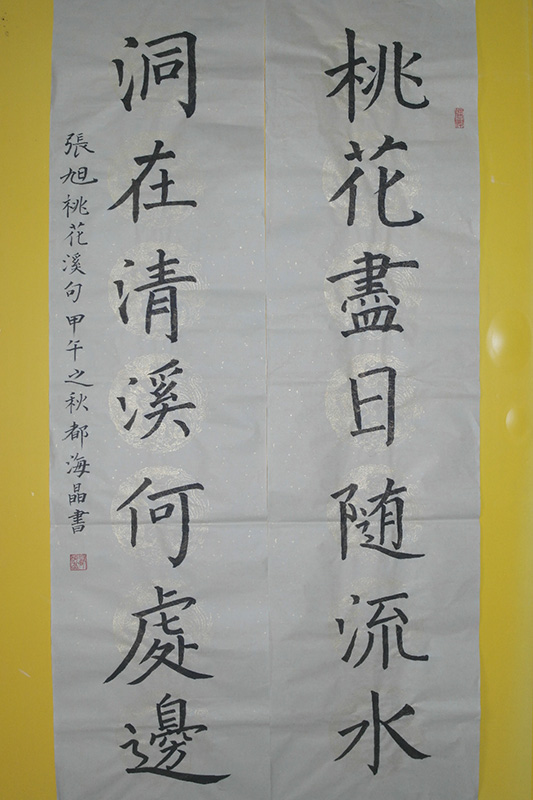 桃花盡日随流水
洞在清溪何處邊
張旭桃花溪句甲午之秋都海晶書